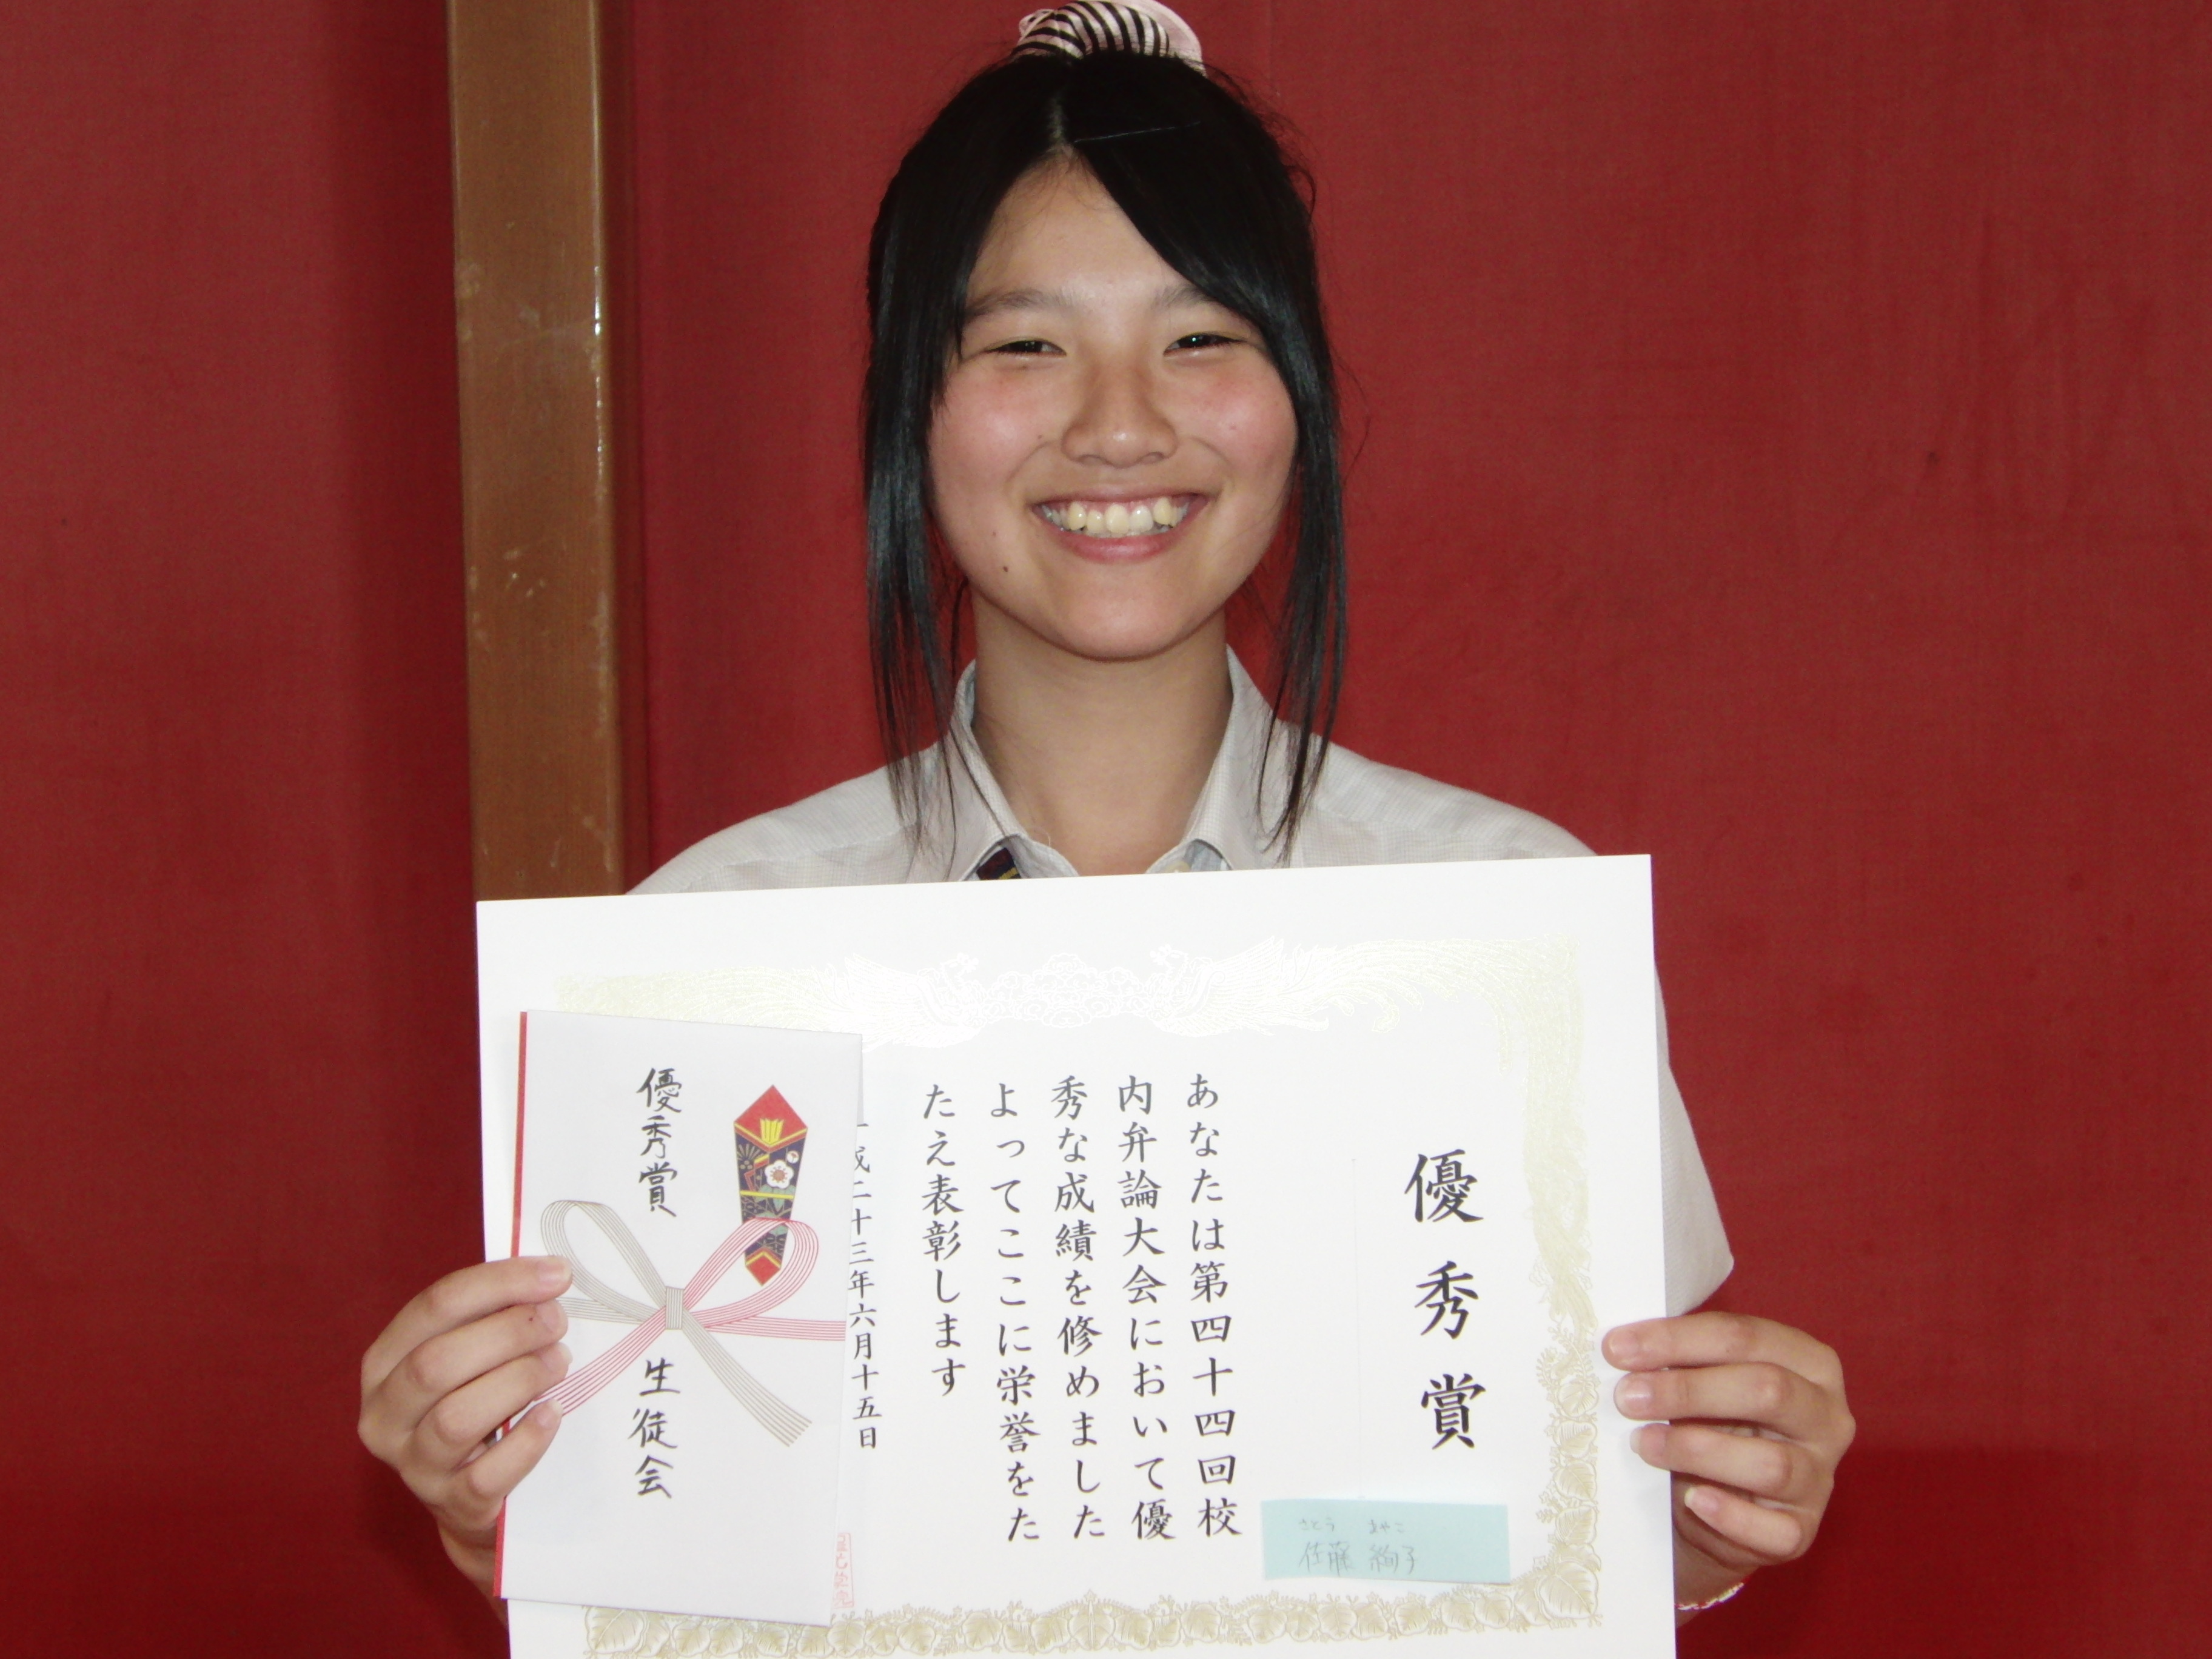 優秀賞
さとう あやこ
佐藤 絢子
あなたは第四十四回校
内弁論大会において優
秀な成績を修めました
よってここに栄誉をた
たえ表彰します
成二十三年六月十五日
優秀賞
生徒会